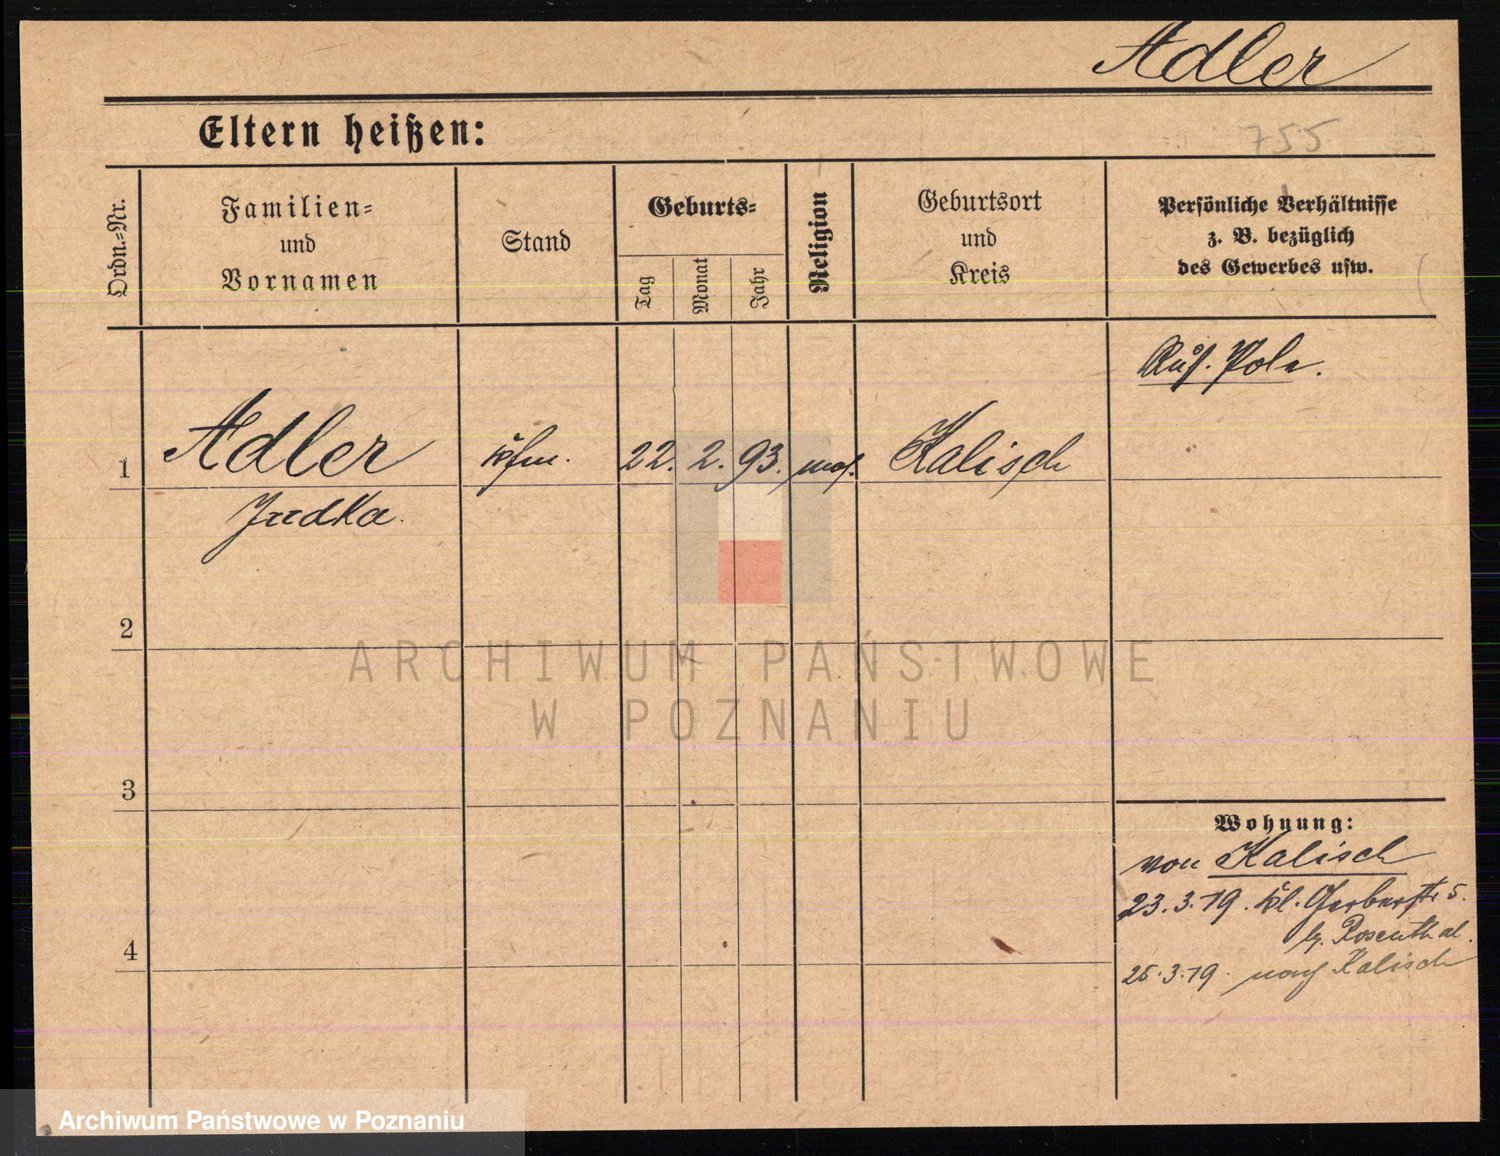 Adler
755
Eltern heißen:
Ordn.-Nr.
Familien-
und
Vornamen
Stand
Geburts-
Tag
Monat
Jahr
Religion
Geburtsort
und
Kreis
Persönliche Verhältnisse
z. B. bezüglich
des Gewerbes usw.
Russ. Pole.
1
Adler
Kfm.
22. 2. 93.
mos.
Kalisch
Judka.
2
3
4
Wohnung:
von Kalisch
23.3.19. Kl. Gerberstr 5.
b. Rosenthal.
25.3.19 nach Kalisch
ARCHIWUM PAŃSTWOWE
W POZNANIU
Archiwum Państwowe w Poznaniu